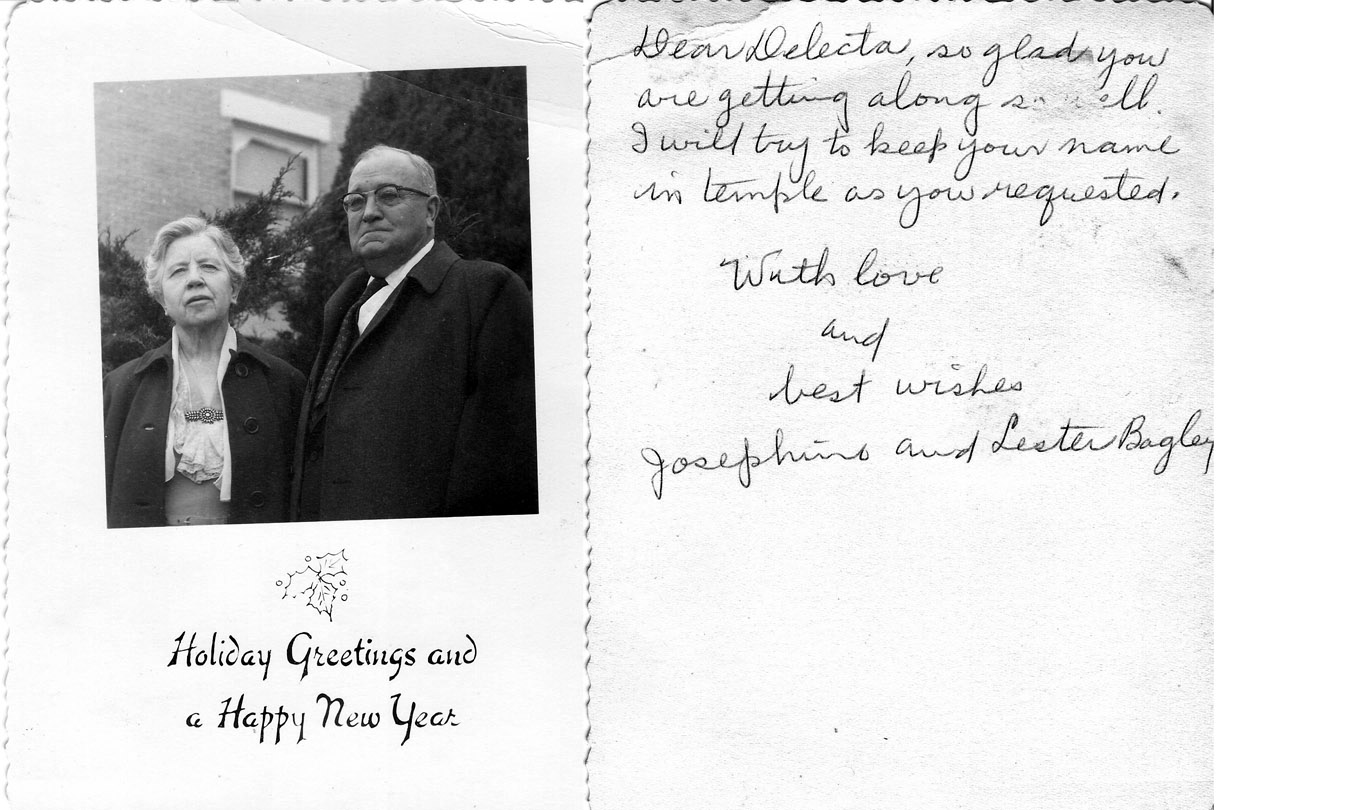 Holiday Greetings and
a Happy New Year
Dear Delecta, so glad you
are getting along
I will try to keep your name
in temple as you requested.
With love
and
best wishes
Josephine and Lester Bagley